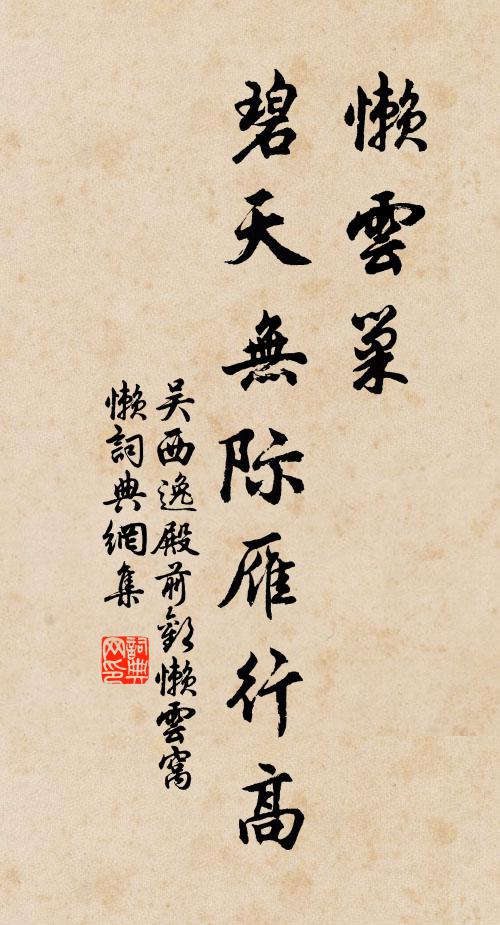 懶雲巢
碧天無际雁行高
吴西逸殿前歡懶雲窩
懶詞典網集
詞典网印